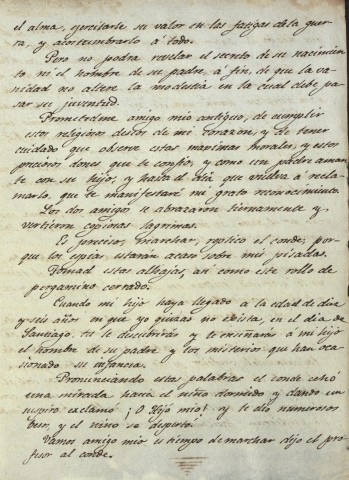 el alma, ejercitarle su valor en las fatigas de la guer
ra, y acostumbrarlo á todo.
Pero no podra revelar el secreto de su nacimien
to ni el nombre de su padre, á fin, de que la va
nidad no altere la modestia en la cual debe pa
sar su juventud.
Prometedme amigo mio antiguo, de cumplir
estos religiosos deseos de mi corazon, y de tener
cuidado que observe estas maximas morales, y estos
preciosos dones que te confio, y como un padre aman
te con su hijo, y hasta el dia que vuelva á recla
marlo, que te manifestaré mi grato reconocimiento.
Los dos amigos se abrazaron tiernamente y
vertieron copiosas lagrimas.
Es forzoso, marchar, replico el conde, por
que los espias estaran acaso sobre mis pisadas.
Tomad estas alhajas, asi como este rollo de
pergamino cerrado.
Cuando mi hijo haya llegado á la edad de diez
y seis años en que yo quizas no exista, en el dia de
Santiago. tu le descubrirás y te enseñarás á mi hijo
el nombre de su padre y los misterios que han oca
sionado su infancia.
Pronunciando estas palabras el conde echó
una mirada hacia el niño dormido y dando un
suspiro exclamó ¡O Hijo mio! y le dio numerosos
besos, y el niño se despertó.
Vamos amigo mio es tiempo de marchar dijo el pro
fesor al conde.